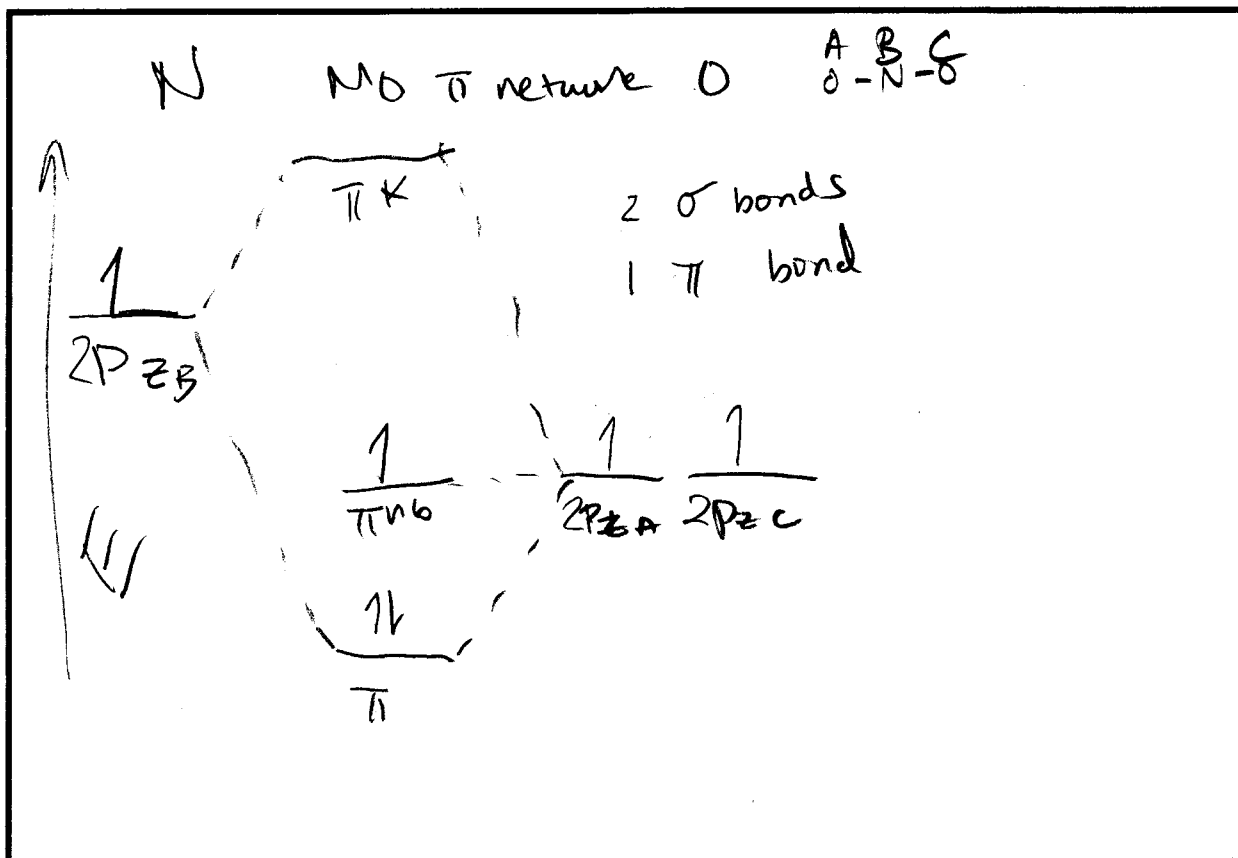 N MO π network O A B C
O-N-O
π*
2 σ bonds
1 π bond
1
2P z B
1 1 1
π nb 2P z A 2P z C
E
1l
π